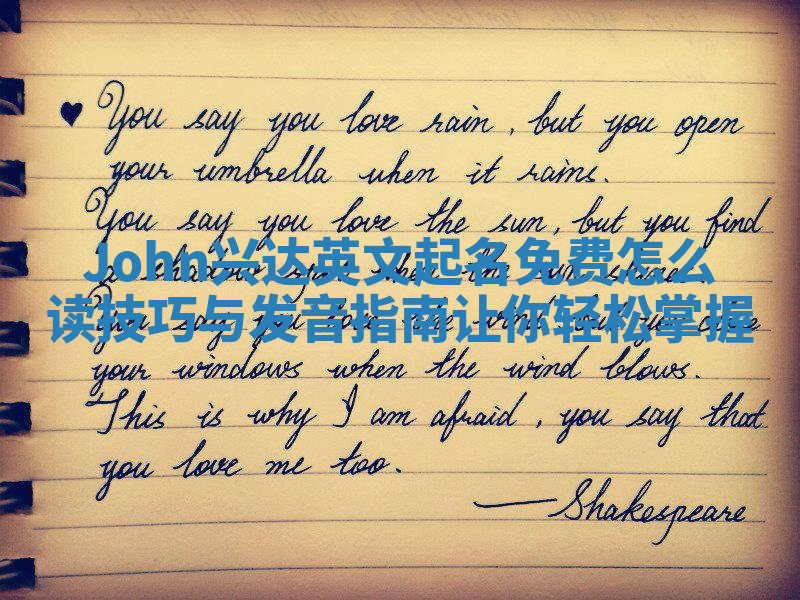 ♥ You say you love rain, but you open
your umbrella when it rains.
You say you love the sun, but you find
a shadow spot when the sun shines.
John兴达英文起名免费怎么
读技巧与发音指南让你轻松掌握
You say you love the wind, but you close
your windows when the wind blows.
This is why I am afraid, you say that
you love me too.
—Shakespeare